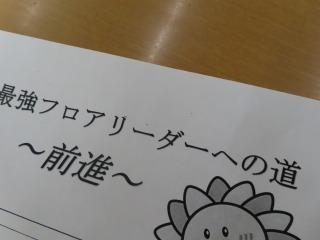 最強フロアリーダーへの道
～前進～